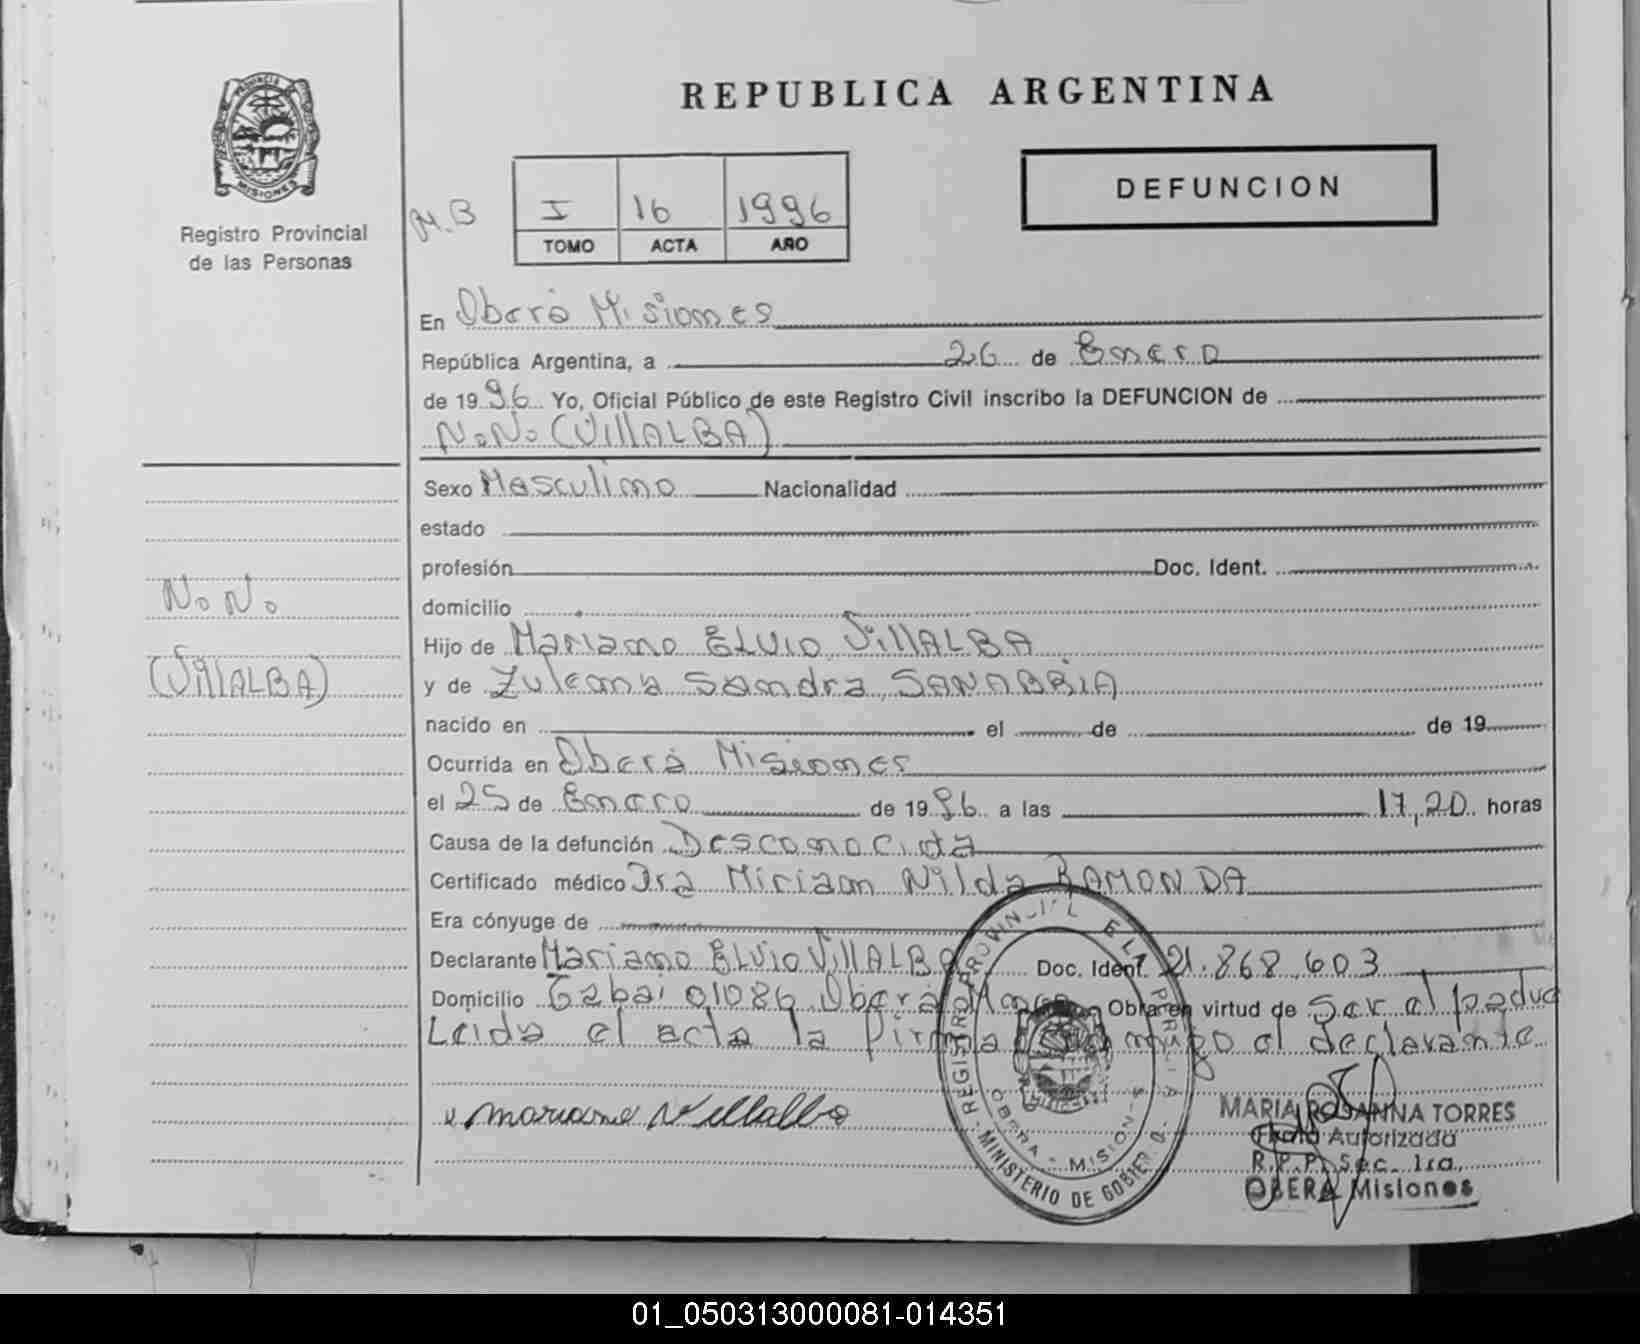 REPUBLICA ARGENTINA
PROVINCIA
MISIONES
Registro Provincial
de las Personas
M.B
I 16 1996
TOMO ACTA AÑO
DEFUNCION
En Oberá Misiones
República Argentina, a 26 de Enero
de 1996 Yo, Oficial Público de este Registro Civil inscribo la DEFUNCION de
N.N. (VillALBA)
Sexo Masculino Nacionalidad
estado
profesión Doc. Ident.
domicilio
N.N.
(VillALBA)
Hijo de Mariano ELVIO VillALBA
y de Zuleana Sandra SANABRIA
nacido en el de de 19
Ocurrida en Oberá Misiones
el 25 de Enero de 1996 a las 17,20 horas
Causa de la defunción Desconocida
Certificado médico Dra Miriam Nilda RAMONDA
Era cónyuge de
Declarante Mariano ELVIO VillALBA Doc. Ident. 21.868.603
Domicilio 01086 Oberá Obra en virtud de Ser el padre
Leida el acta la Firma conmigo el declarante
Mariano Villalba
REGISTRO PROVINCIAL
MINISTERIO DE GOBIERNO
OBERA - MISIONES
MARIA ROSANNA TORRES
Firma Autorizada
R.P.P. Sec. 1ra.
OBERA Misiones
01_050313000081-014351